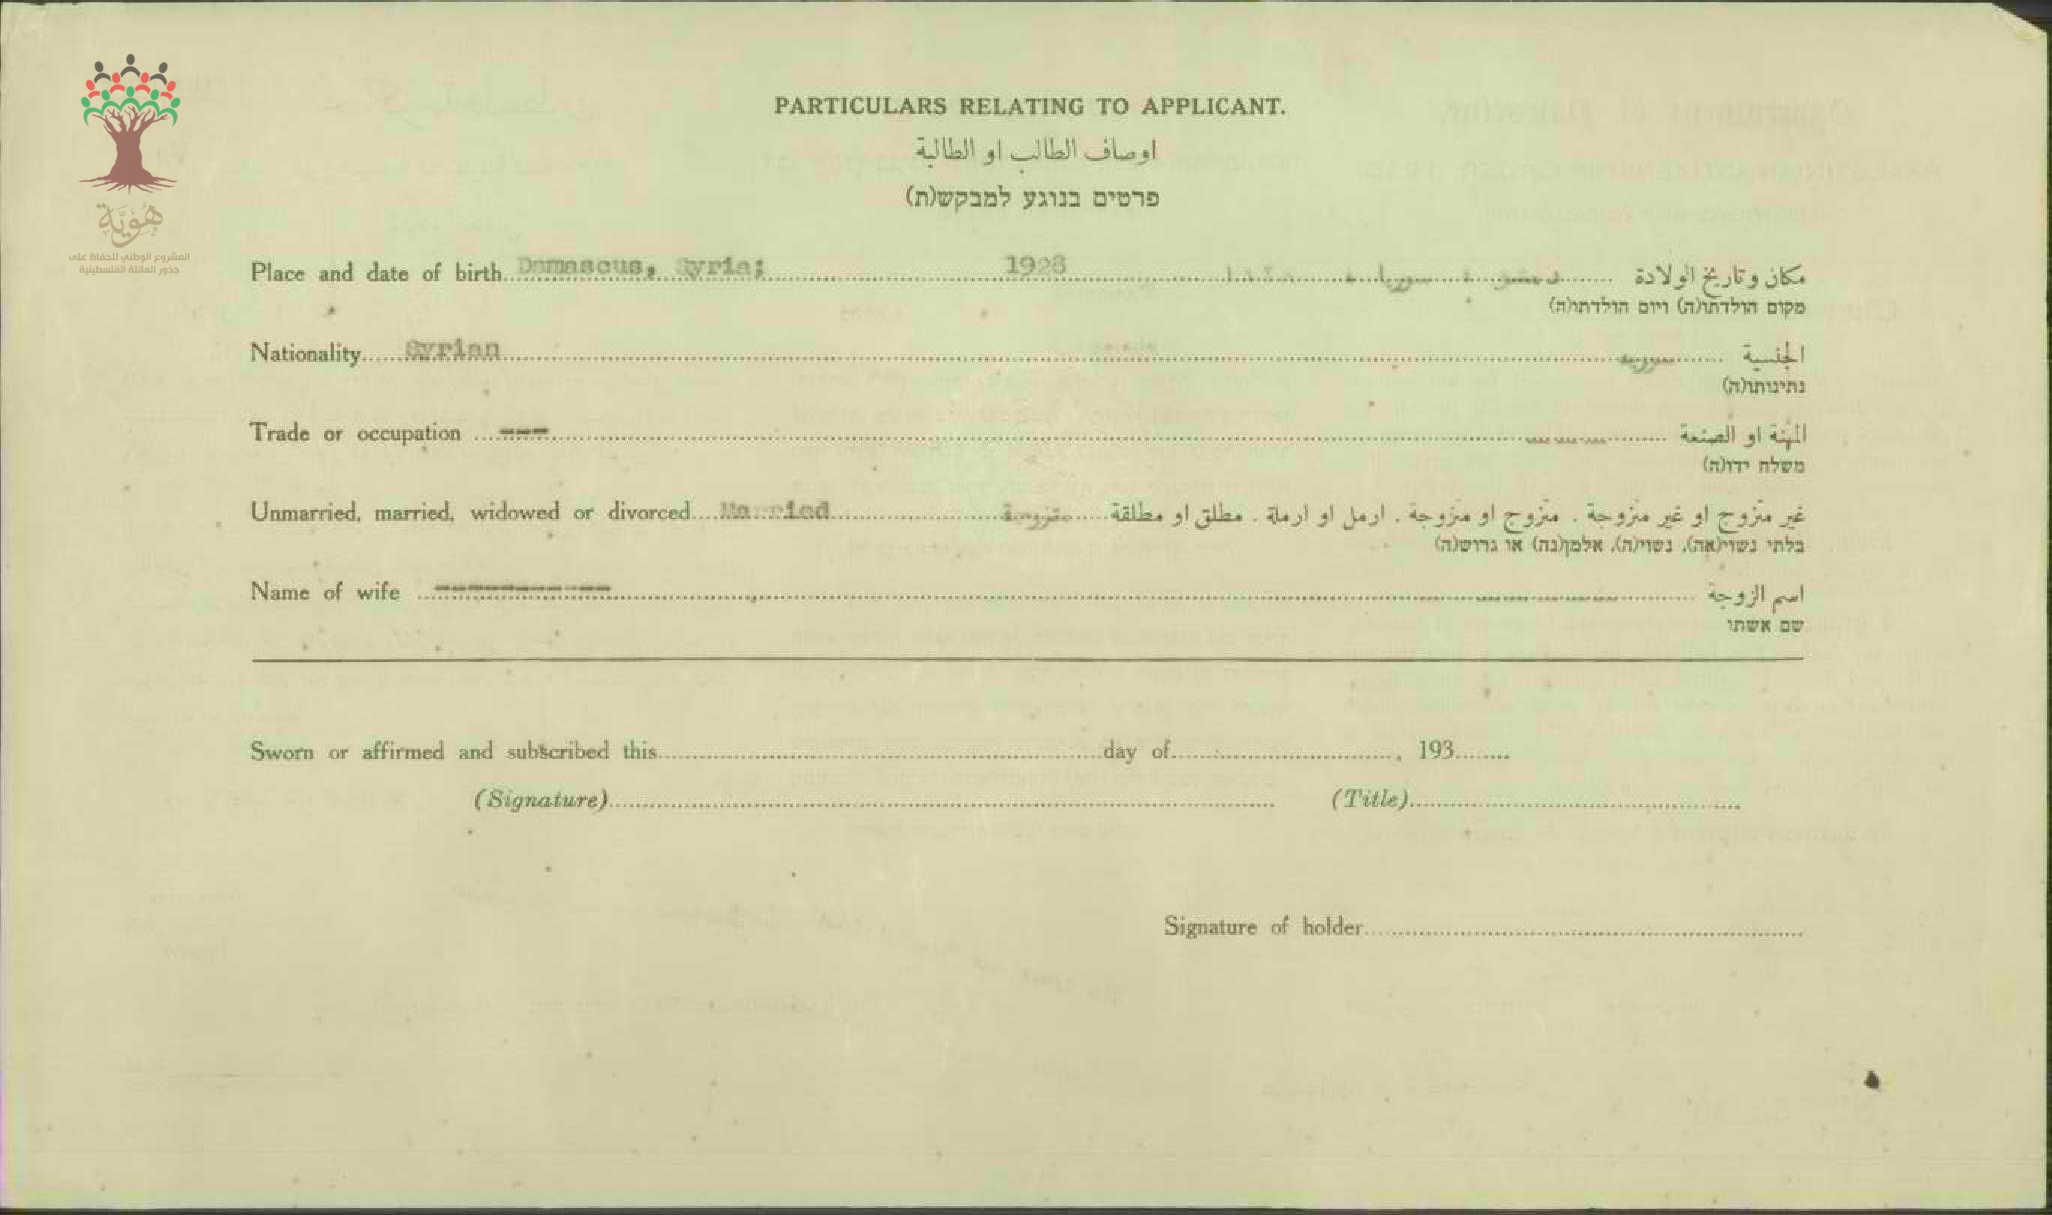 هُوِيَّة
المشروع الوطني للحفاظ على
جذور العائلة الفلسطينية
PARTICULARS RELATING TO APPLICANT.
اوصاف الطالب او الطالبة
פרטים בנוגע למבקש(ת)
Place and date of birth Damascus, Syria; 1928 دمشق ، سوريا ، مكان وتاريخ الولادة
מקום הולדתו(ה) ויום הולדתו(ה)
Nationality Syrian سورية الجنسية
נתינותו(ה)
Trade or occupation --- المهنة او الصنعة
משלח ידו(ה)
Unmarried, married, widowed or divorced Married متزوجة غير متزوج او غير متزوجة . متزوج او متزوجة . ارمل او ارملة . مطلق او مطلقة
בלתי נשוי(אה), נשוי(ה), אלמן(נה) או גרוש(ה)
Name of wife ---------- اسم الزوجة
שם אשתו
Sworn or affirmed and subscribed this day of , 193
(Signature) (Title)
Signature of holder